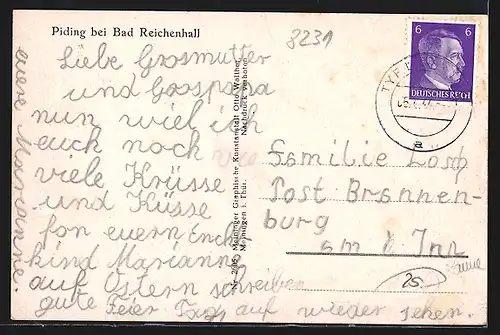 Piding bei Bad Reichenhall
8231
Liebe Grosmutter
und Grospapa
nun wiel ich
euch noch
viele Krüsse
und Küsse
fon euern Enck
kind Marianne
auf Ostern schreiben
gute Feier Tag auf wieder sehen.
eure Marianne.
Meininger Graphische Kunstanstalt Otto Walther,
Meiningen i. Thür. Nachdruck verboten
6 6
DEUTSCHES REICH
a
Familie
Post Brannen-
burg
am Inn
25